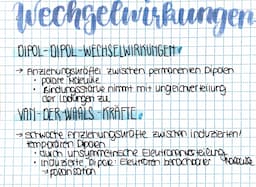 Wechselwirkungen
DIPOL-DIPOL-WECHSELWIRKUNGEN
→ Anziehungskräfte zwischen permanenten Dipolen
• polare Moleküle
• Bindungsstärke nimmt mit Ungleichverteilung
der Ladungen zu
VAN-DER-WAALS-KRÄFTE
→ schwache Anziehungskräfte zwischen induzierten/
temporären Dipolen
• durch unsymmetrische Elektronenverteilung
• induzierte Dipole: Elektronen benachbarter Moleküle
→ Polarisation